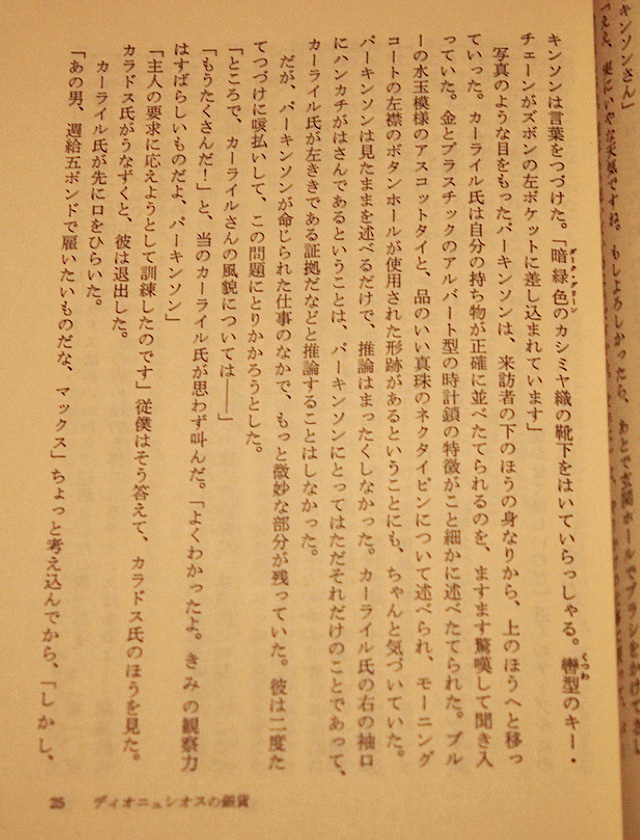 キンソンさん」
キンソンは言葉をつづけた。「暗緑色のカシミヤ織の靴下をはいていらっしゃる。轡型のキー・
ダーク・グリーン
くつわ
チェーンがズボンの左ポケットに差し込まれています」
写真のような目をもったパーキンソンは、来訪者の下のほうの身なりから、上のほうへと移っ
ていった。カーライル氏は自分の持ち物が正確に並べたてられるのを、ますます驚嘆して聞き入
っていた。金とプラスチックのアルバート型の時計鎖の特徴がこと細かに述べたてられた。ブル
ーの水玉模様のアスコットタイと、品のいい真珠のネクタイピンについて述べられ、モーニング
コートの左襟のボタンホールが使用された形跡があるということにも、ちゃんと気づいていた。
パーキンソンは見たままを述べるだけで、推論はまったくしなかった。カーライル氏の右の袖口
にハンカチがはさんであるということは、パーキンソンにとってはただそれだけのことであって、
カーライル氏が左ききである証拠だなどと推論することはしなかった。
だが、パーキンソンが命じられた仕事のなかで、もっと微妙な部分が残っていた。彼は二度た
てつづけに咳払いして、この問題にとりかかろうとした。
「ところで、カーライルさんの風貌については――」
「もうたくさんだ！」と、当のカーライル氏が思わず叫んだ。「よくわかったよ。きみの観察力
はすばらしいものだよ、パーキンソン」
「主人の要求に応えようとして訓練したのです」従僕はそう答えて、カラドス氏のほうを見た。
カラドス氏がうなずくと、彼は退出した。
カーライル氏が先に口をひらいた。
「あの男、週給五ポンドで雇いたいものだな、マックス」ちょっと考え込んでから、「しかし、
25 ディオニュシオスの銀貨